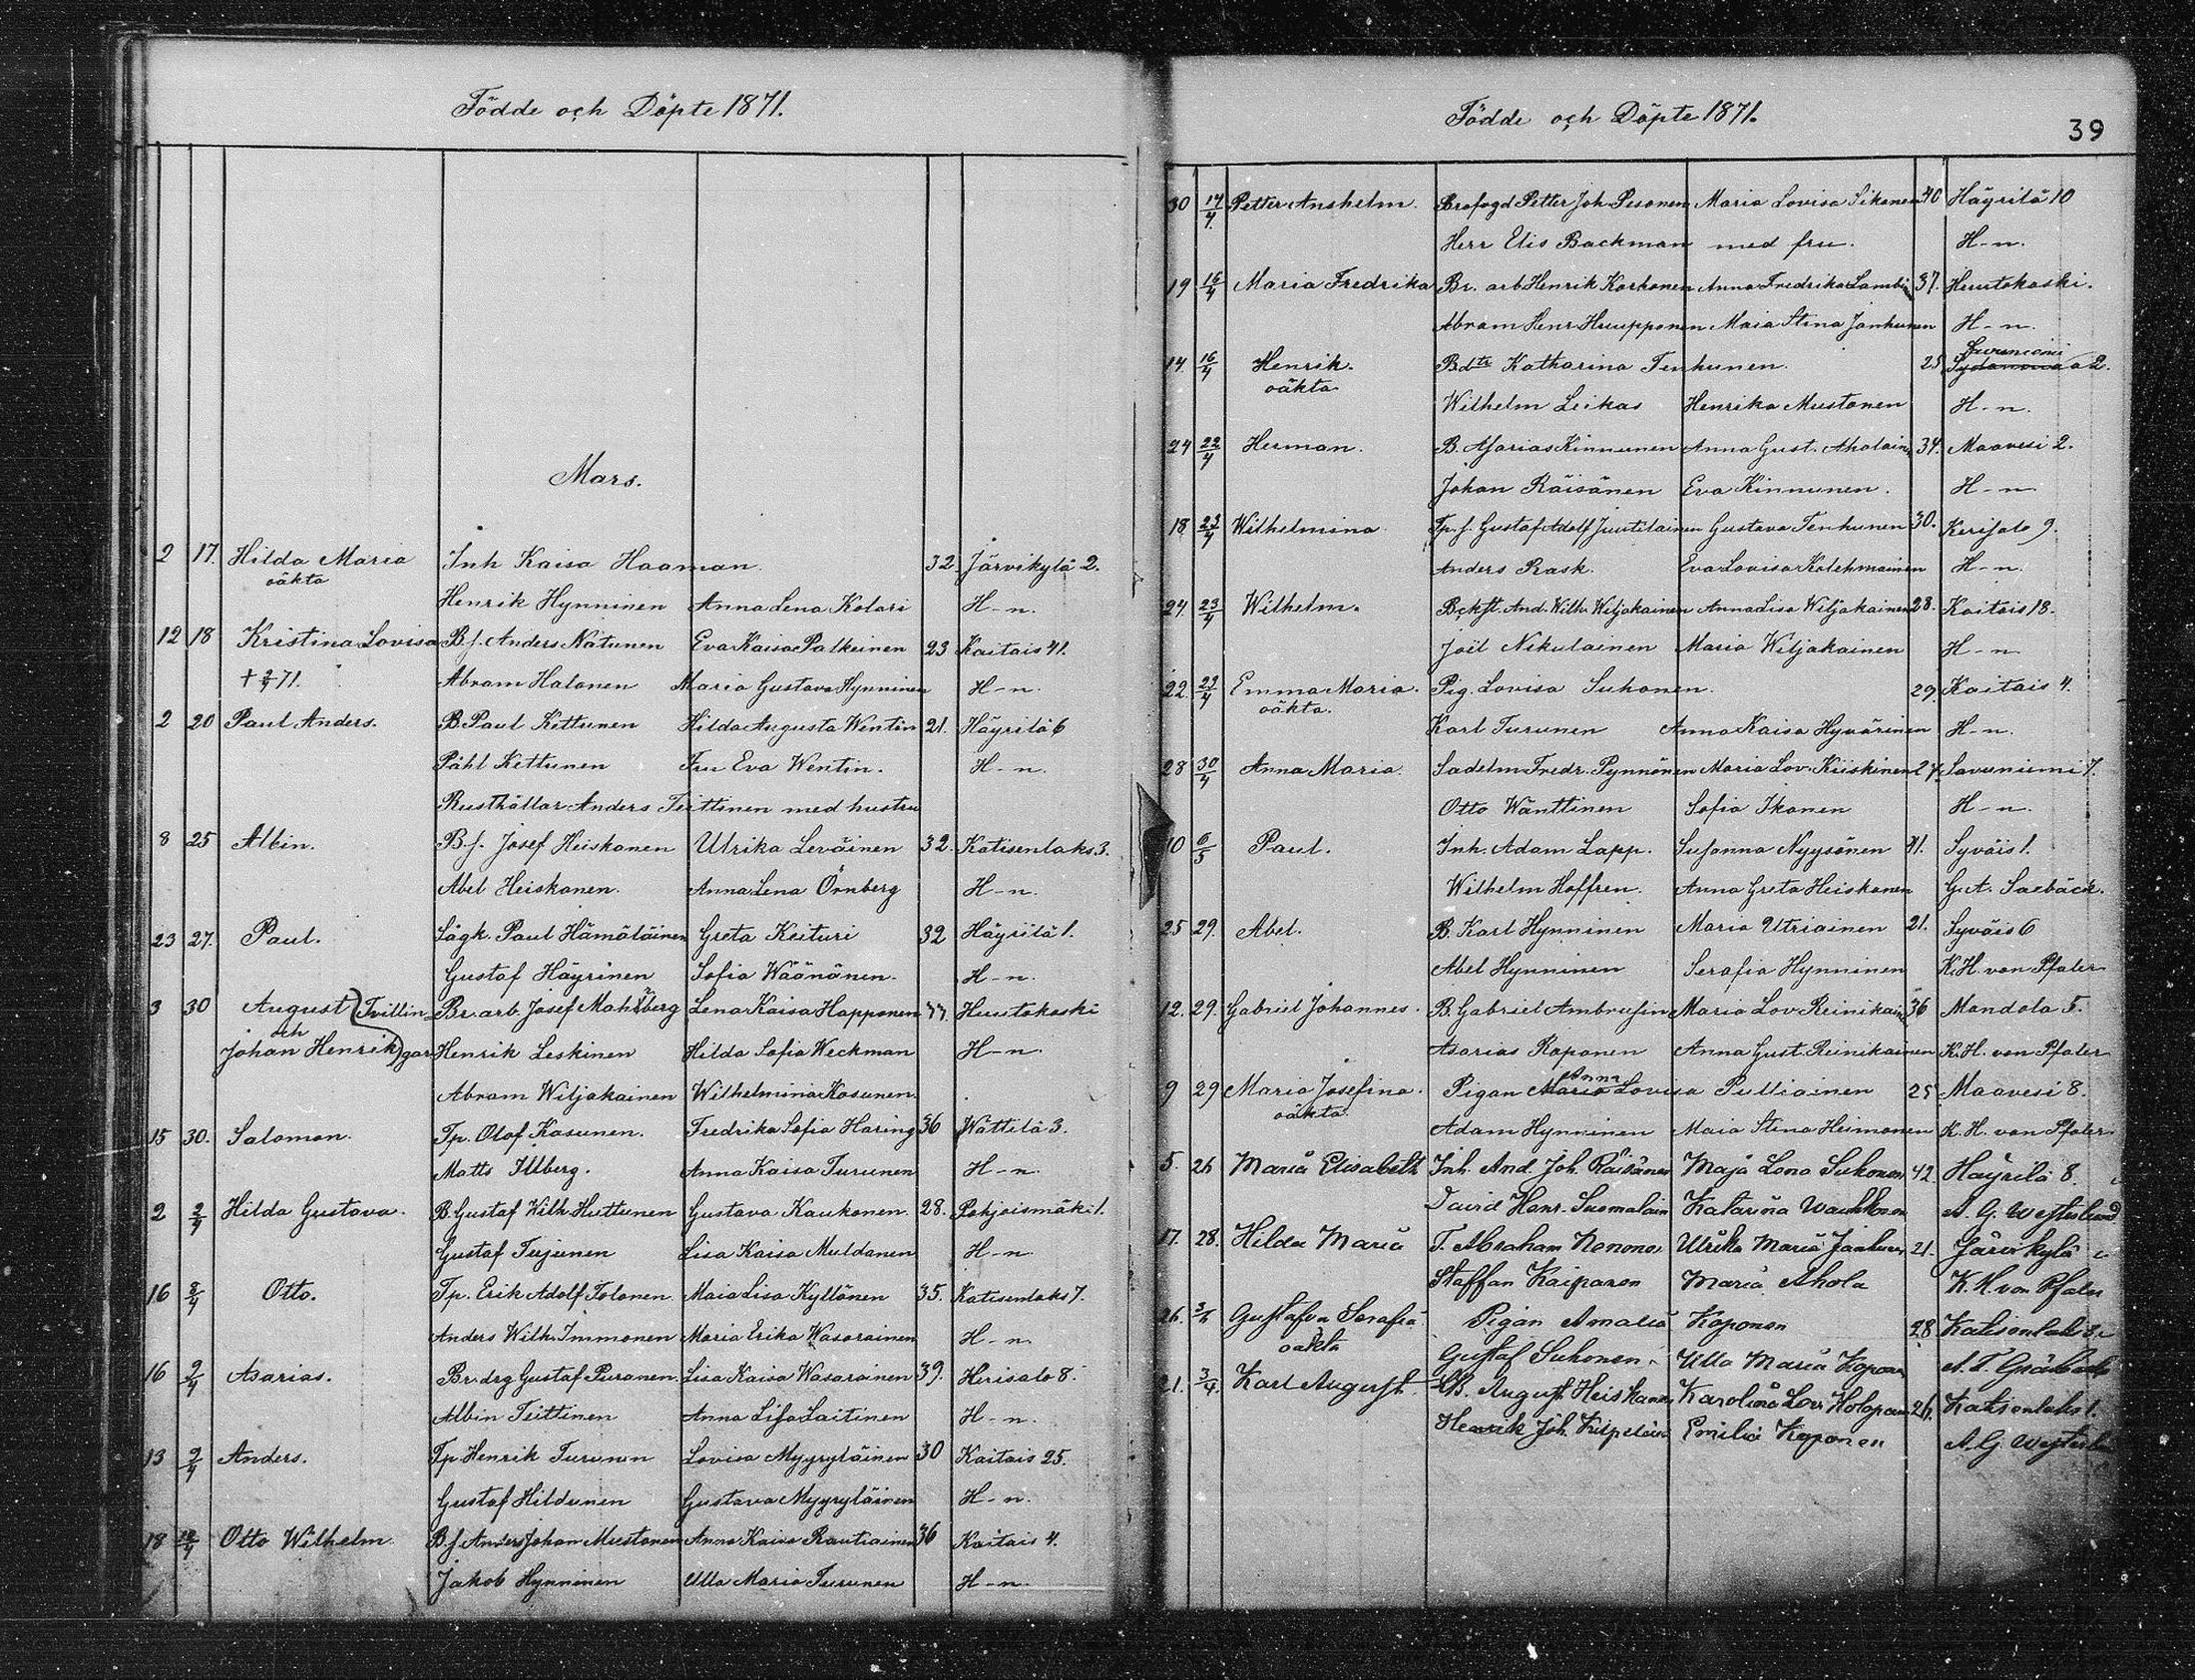 Födde och Döpte 1871.
Mars.
2 17. Hilda Maria Inh Kaisa Haaman. 32. Järvikylä 2.
oäkta
Henrik Hynninen Anna Lena Kolari H-n.
12 18 Kristina Lovisa B.f. Anders Natunen Eva Kaisa Palkeinen 23 Kaitais 41.
+ 2/4 71. Abram Halonen Maria Gustava Hynninen H-n.
2 20 Paul Anders. B. Paul Kettunen Hilda Augusta Wentin 21. Häyrilä 6
Påhl Kettunen Fru Eva Wentin. H-n.
Rusthållar Anders Tiittinen med hustru
8 25 Albin. B.f. Josef Heiskanen Ulrika Leväinen 32. Katisenlaks 3.
Abel Heiskanen. Anna Lena Örnberg H-n.
23 27. Paul. Lågk. Paul Hämäläinen Greta Keituri 32 Häyrilä 1.
Gustaf Häyrinen Sofia Wäänänen. H-n.
3 30 August (Tvillin- Br. arb. Josef Lena Kaisa Happonen Huutokoski
och
Johan Henrik) gar Henrik Leskinen Hilda Sofia Weckman H-n.
Abram Wiljakainen Wilhelmina Kasunen.
15 30. Salomon. Tp. Olof Kasunen. Fredrika Sofia Haring 36 Wättilä 3.
Matts Illberg. Anna Kaisa Turunen H-n.
2 2/4 Hilda Gustava. B. Gustaf Wilh. Huttunen Gustava Kaukonen. 28. Pohjoismäki 1.
Gustaf Lisa Kaisa Muldanen H-n
16 2/4 Otto. Tp. Erik Adolf Tolonen Maia Lisa Kyllönen 35. Katisenlaks 7.
Anders Wilh. Immonen Maria Erika Wasarainen H-n
16 2/4 Asarias. Br. drg Gustaf Puranen. Lisa Kaisa Wasarainen 39. 8.
Albin Tiittinen Anna Lisa Laitinen H-n.
13 2/4 Anders. Tp Henrik Turunen Lovisa Myyryläinen 30 Kaitais 25.
Gustaf Hildunen Gustava Myyryläinen H-n.
18 Otto Wilhelm. B.f. Anders Johan Mustonen Anna Kaisa Rautiainen 36 Kaitais 4.
Jakob Hynninen Ulla Maria Turunen H-n.
Födde och Döpte 1871.
39
30 14/4. Petter Anshelm. Brofogd Petter Joh. Pesonen Maria Lovisa Sikanen 40 Häyrilä 10
Herr Elis Backman med fru. H-n.
19 16/4 Maria Fredrika Br. arb Henrik Korhonen Anna Fredrika Lambi 37. Huutokoski.
Abram Henr. Huupponen Maia Stina Janhunen H-n.
14. 16/4 Henrik. Bdtr Katharina Tenhunen. 25 2.
oäkta
Wilhelm Leikas Henrika Mustonen H-n.
24 22/4 Herman. B. Asarias Kinnunen Anna Gust. Aholain 34. Maavesi 2.
Johan Räisänen Eva Kinnunen. H-n
18 23/4 Wilhelmina Tp. f. Gustaf Adolf Juutilainen Gustava Tenhunen 30. Kerisalo 9.
Anders Rask. Eva Lovisa Kolehmainen H-n.
27. 23/4 Wilhelm. And. Wilh. Wiljakainen Anna Lisa Wiljakainen 28. Kaitais 18.
Joël Nikulainen Maria Wiljakainen H-n
22. 23/4 Emma Maria. Pig. Lovisa Suhonen. 29. Kaitais 4.
oäkta.
Karl Turunen Anna Kaisa Hyvärinen H-n.
28 30/4 Anna Maria. Sadelm Fredr. Pynnönen Maria Lov. Kiiskinen 27. Savuniemi 7.
Otto Wänttinen Sofia Ikonen H-n.
10 6/5 Paul. Inh. Adam Lapp. Susanna Nyysönen 41. Syväis 1.
Wilhelm Hoffren. Anna Greta Heiskanen G. A. Saebäck.
25 29. Abel. B. Karl Hynninen Maria Utriainen 21. Syväis 6
Abel Hynninen Serafia Hynninen K. H. von Pfaler
12. 29. Gabriel Johannes. B. Gabriel Ambrusin Maria Lov Reinikain 36 Mandola 5.
Asarias Kaponen Anna Gust. Reinikainen K. H. von Pfaler
Anna
9 29 Maria Josefina. Pigan Maria Lovisa Pulliainen 25 Maavesi 8.
oäkta.
Adam Hynninen Maia Stina Heimonen K. H. von Pfaler
5. 26 Maria Elisabeth Inh. And. Joh. Räisänen Maja Lena Suhonen 42. Häyrilä 8.
David Henr. Suomalain Katarina A. G. Westerlund
17. 28. Hilda Maria T. Abraham Nenonen Ulrika Maria 21. Järvikylä
Staffan Kaiponen Maria Ahola K. H. von Pfaler
26. Gustafva Serafia Pigan Amalia Koponen 28 Katisenlaks 3.
oäkta
Gustaf Suhonen Ulla Maria
21. 3/4. Karl August B. August Heiskanen Karolina Lov. Holopain 26. Katisenlaks 1.
Henrik Joh. Emilia Koponen A. G. Westerl